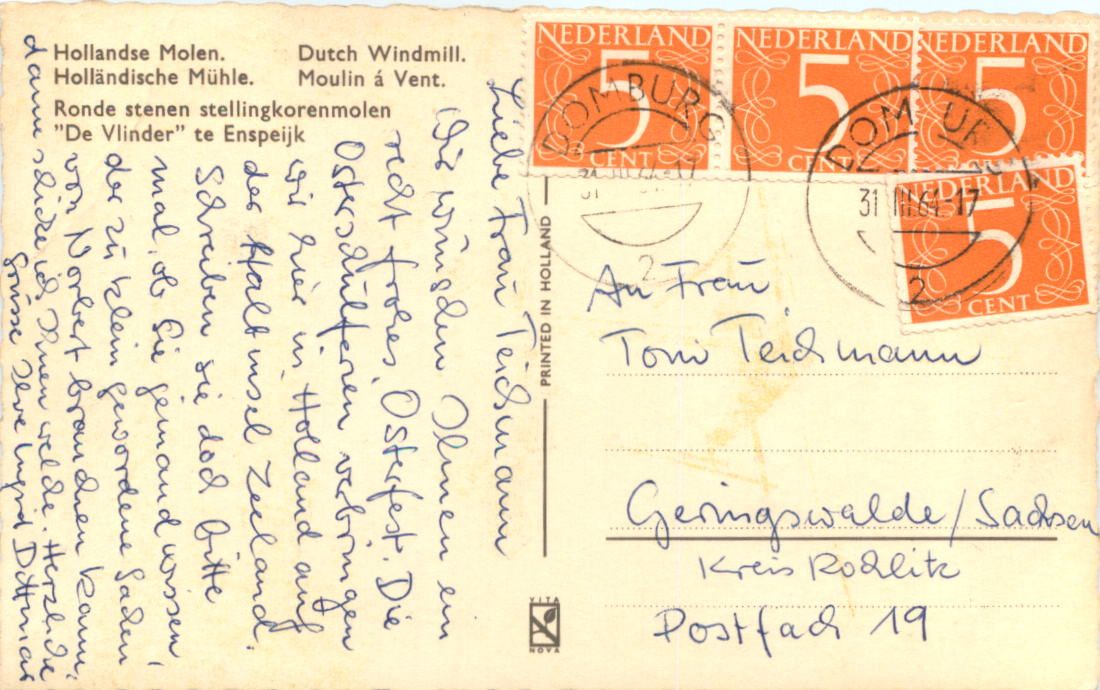 Hollandse Molen. Dutch Windmill.
Holländische Mühle. Moulin á Vent.
Ronde stenen stellingkorenmolen
"De Vlinder" te Enspeijk
Liebe Frau Teichmann
Wir wünschen Ihnen ein
recht frohes Osterfest. Die
Osterschulferien verbringen
wir hier in Holland auf
der Halbinsel Zeeland.
Schreiben sie doch bitte
mal, ob Sie jemand wissen,
der zu klein gewordene Sachen
von Norbert brauchen kann,
dann schicke ich Ihnen welche. Herzliche
Grüsse Ihre Ingrid Dittmar
PRINTED IN HOLLAND
VITA
NOVA
NEDERLAND
5
CENT
NEDERLAND
5
CENT
NEDERLAND
5
NEDERLAND
5
CENT
DOMBURG
31 III 64-17
2
DOMBURG
31 III 64-17
2
An Frau
Toni Teichmann
Geringswalde/Sachsen
Kreis Rochlitz
Postfach 19